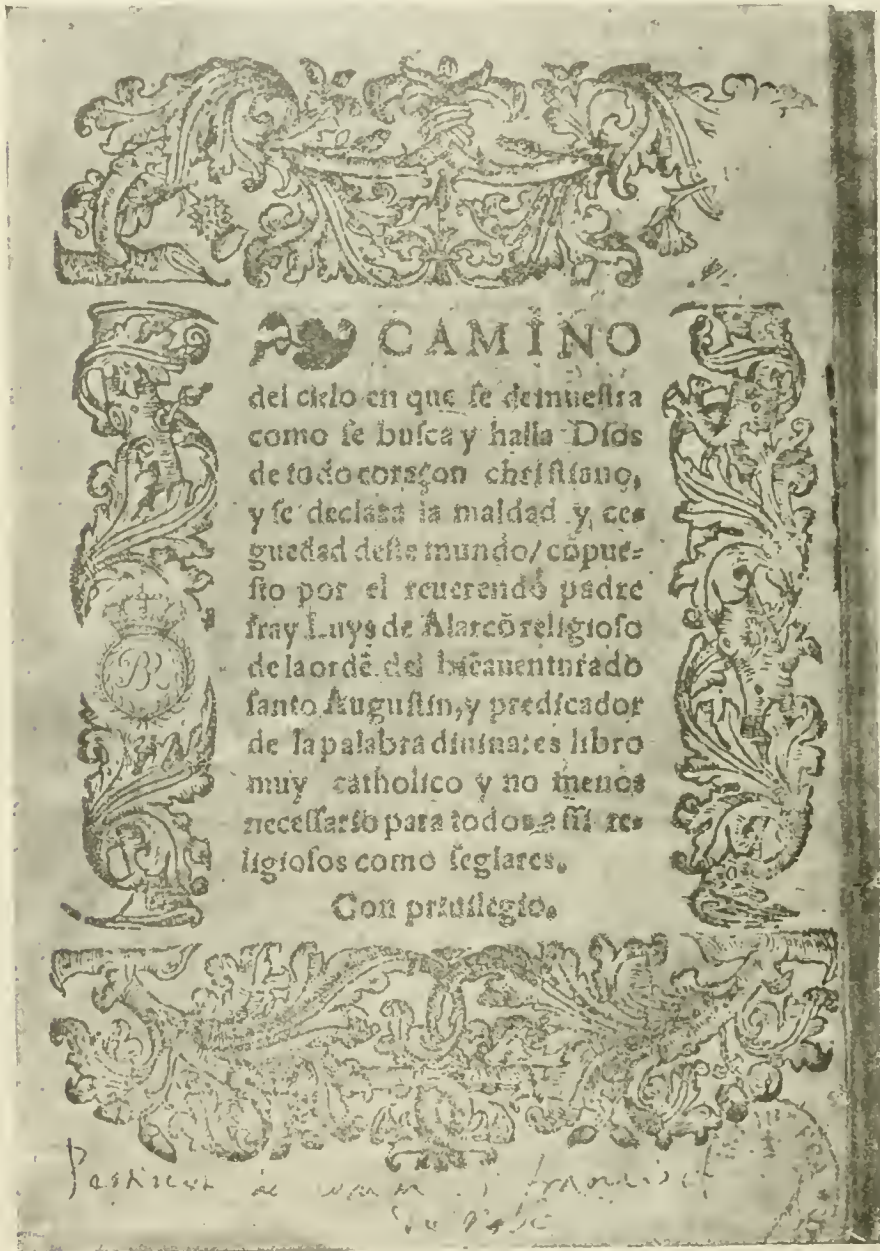 CAMINO
del cielo en que ſe demueſtra
como ſe buſca y halla Dios
de todo coraçon chriſtiano,
y ſe declara la maldad y ce-
guedad deſte mundo/ cõpue-
ſto por el reuerendo padre
fray Luys de Alarcõ religioſo
de la ordẽ del biẽauenturado
ſanto Auguſtin, y predicador
de la palabra diuina: es libro
muy catholico y no menos
neceſſario para todos aſſi re-
ligioſos como ſeglares.
Con priuilegio.
BR